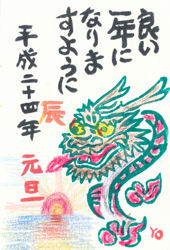 良い
一年に
なりま
すように
辰
平成二十四年
元旦
YO